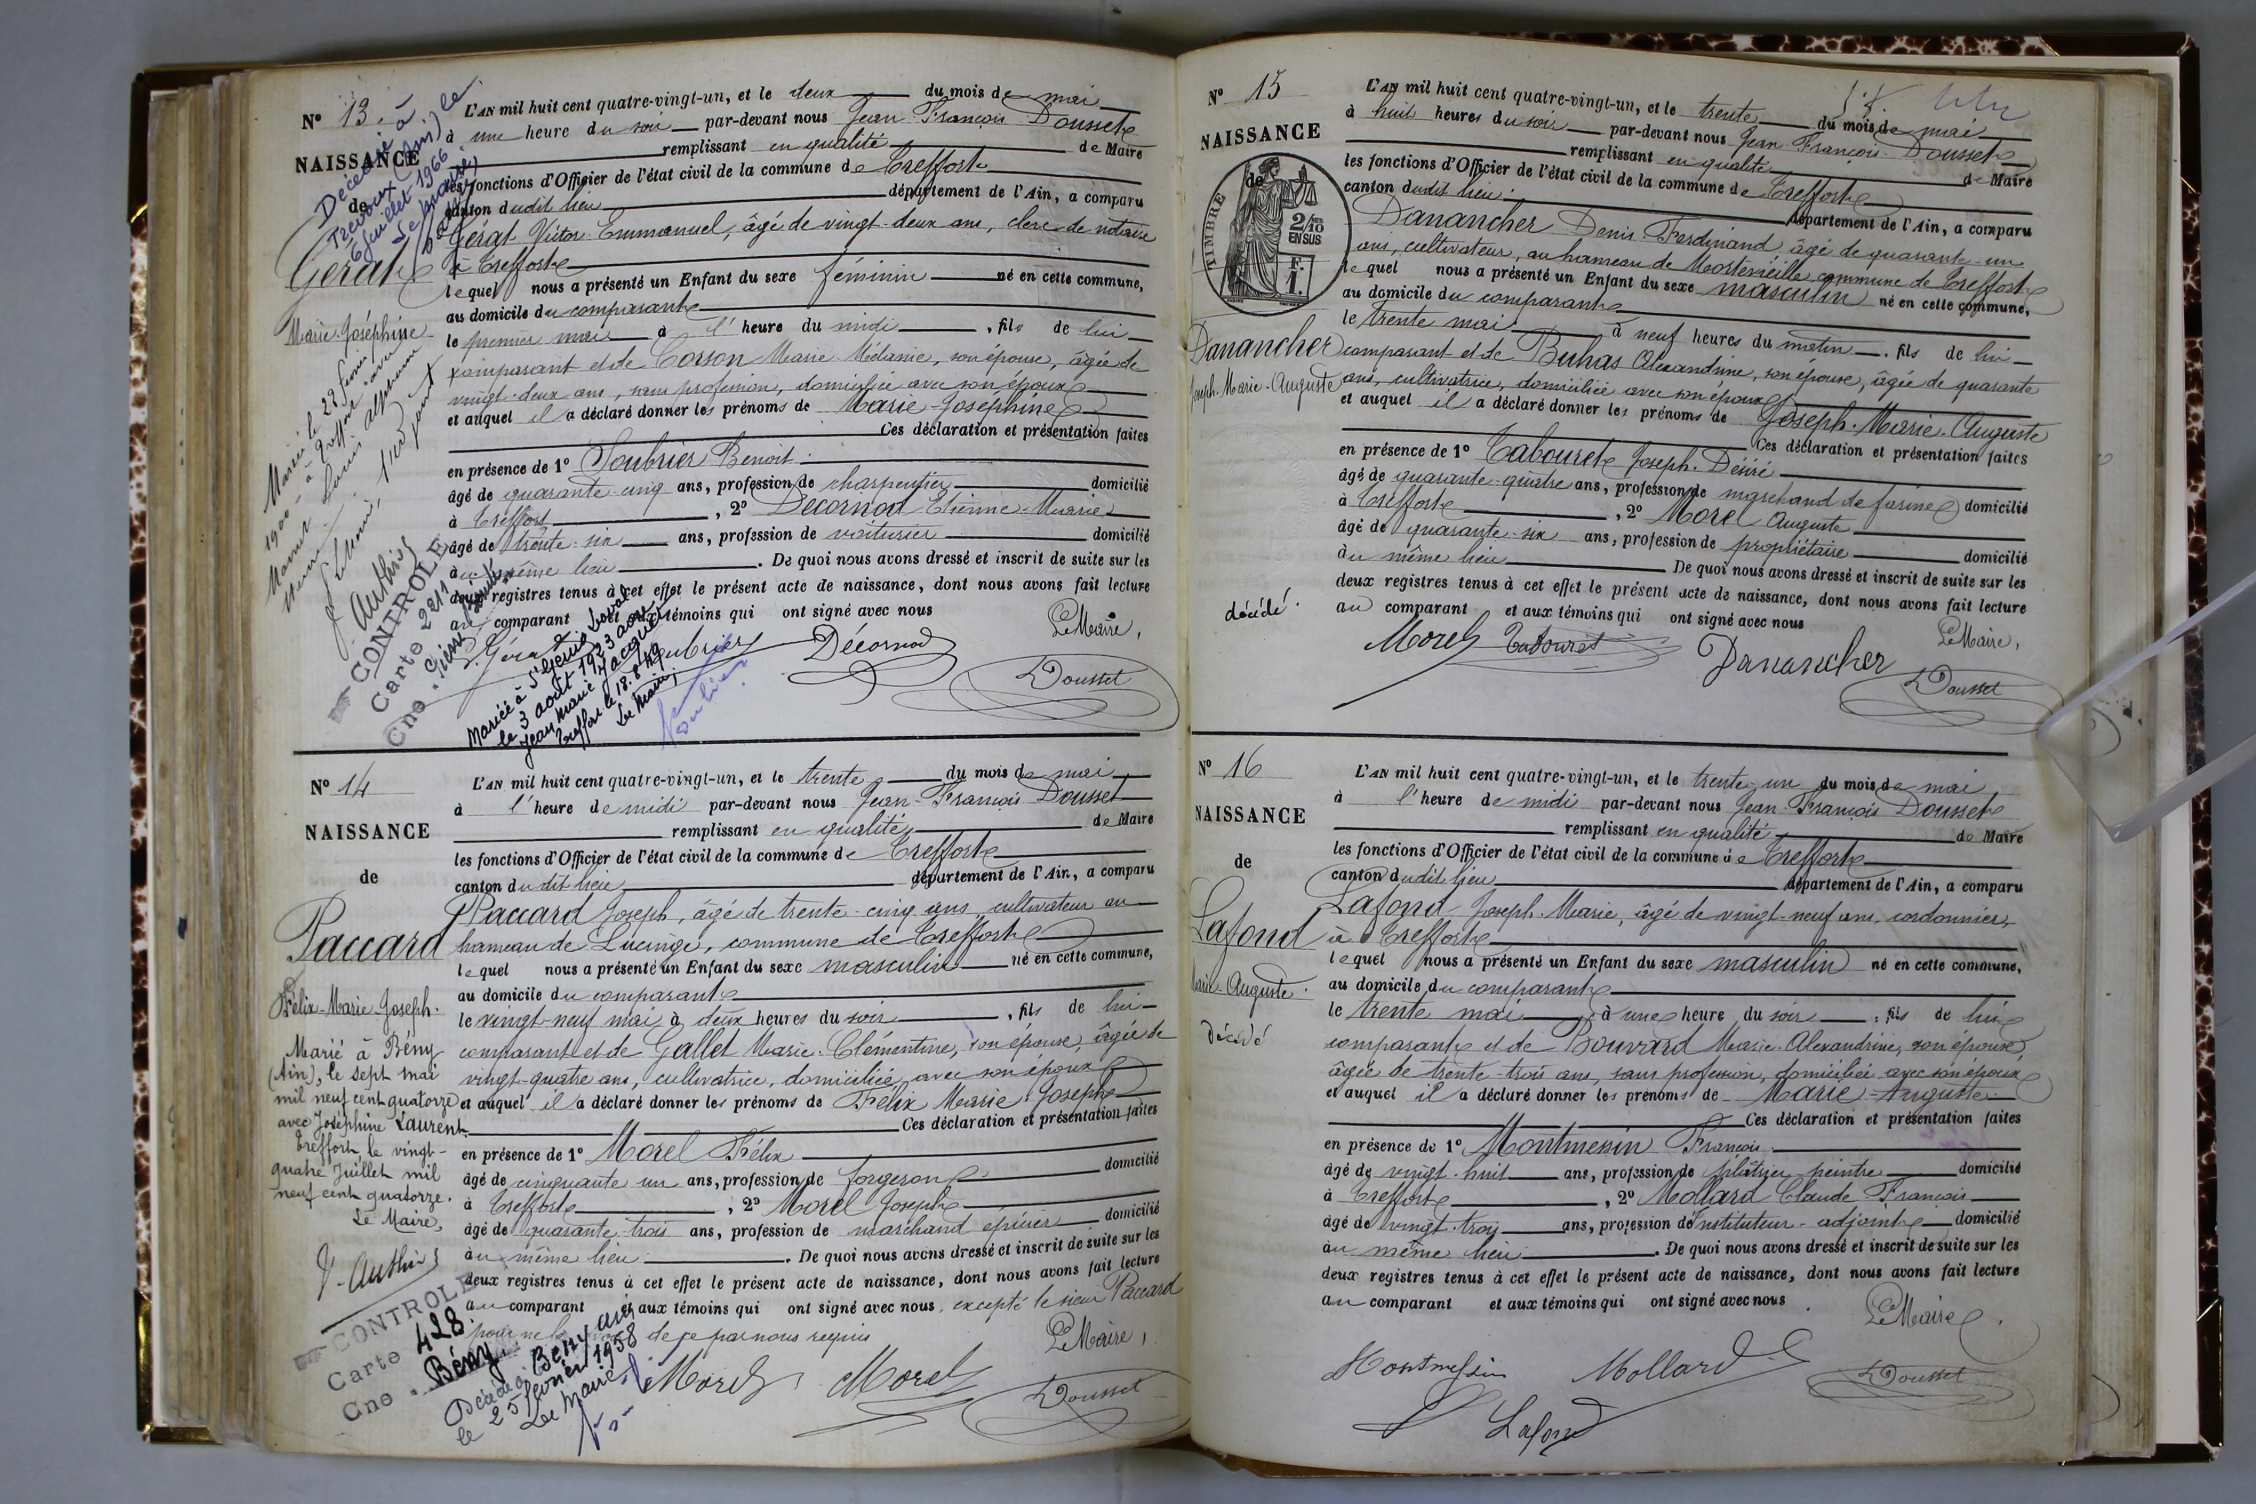 N° 13.
NAISSANCE
de
Gérat
Marie Joséphine
Décédée à
Trévoux (Ain) le
6 juillet 1966
Le Maire,
L'AN mil huit cent quatre-vingt-un, et le deux du mois de mai
à une heure du soir par-devant nous Jean-François Dousset
remplissant en qualité de Maire
les fonctions d'Officier de l'état civil de la commune de Treffort
canton dudit lieu département de l'Ain, a comparu
Gérat Victor Emmanuel, âgé de vingt-deux ans, clerc de notaire
à Treffort
lequel nous a présenté un Enfant du sexe féminin né en cette commune,
au domicile du comparant
le premier mai à l'heure du midi, fils de lui
comparant et de Corson Marie Mélanie, son épouse, âgée de
vingt-deux ans, sans profession, domiciliée avec son époux
et auquel il a déclaré donner les prénoms de Marie-Joséphine
Ces déclaration et présentation faites
en présence de 1° Soubrier Benoit
âgé de quarante-cinq ans, profession de charpentier domicilié
à Treffort, 2° Décornod Etienne-Marie
âgé de trente-six ans, profession de voiturier domicilié
au même lieu. De quoi nous avons dressé et inscrit de suite sur les
deux registres tenus à cet effet le présent acte de naissance, dont nous avons fait lecture
au comparant et aux témoins qui ont signé avec nous
Le Maire,
V. Gérat Soubrier Décornod
Dousset
Marié le 22 février
1900 à Treffort avec
CONTROLE
Carte 2211
Cne
Mariée à St Genis Laval
le 3 août 1923 avec
Jean Marie Jacquet
Treffort le 18.8.49
Le Maire,
N° 14
NAISSANCE
de
Paccard
Félix-Marie-Joseph.
Marié à Bény
(Ain), le sept mai
mil neuf cent quatorze
avec Joséphine Laurent.
Treffort, le vingt-
quatre Juillet mil
neuf cent quatorze.
Le Maire,
L'AN mil huit cent quatre-vingt-un, et le trente du mois de mai
à l'heure de midi par-devant nous Jean-François Dousset
remplissant en qualité de Maire
les fonctions d'Officier de l'état civil de la commune de Treffort
canton dudit lieu département de l'Ain, a comparu
Paccard Joseph, âgé de trente-cinq ans, cultivateur au
hameau de Lucinge, commune de Treffort
lequel nous a présenté un Enfant du sexe masculin né en cette commune,
au domicile du comparant
le vingt-neuf mai à deux heures du soir, fils de lui
comparant et de Gallet Marie-Clémentine, son épouse, âgée de
vingt-quatre ans, cultivatrice, domiciliée avec son époux
et auquel il a déclaré donner les prénoms de Félix Marie Joseph
Ces déclaration et présentation faites
en présence de 1° Morel Félix
âgé de cinquante un ans, profession de forgeron domicilié
à Treffort, 2° Morel Joseph
âgé de quarante-trois ans, profession de marchand épicier domicilié
au même lieu. De quoi nous avons dressé et inscrit de suite sur les
deux registres tenus à cet effet le présent acte de naissance, dont nous avons fait lecture
au comparant et aux témoins qui ont signé avec nous, excepté le sieur Paccard
pour ne le de ce par nous requis
Le Maire,
Morel Morel
Dousset
CONTROLE
Carte 428
Cne. Bény
Décédé à Bény Ain
le 25 février 1958
Le Maire
N° 15
NAISSANCE
de
TIMBRE
2/10
EN SUS
F.
1.
Danancher
Joseph-Marie-Auguste
décédé.
L'AN mil huit cent quatre-vingt-un, et le trente du mois de mai
à huit heures du soir par-devant nous Jean-François Dousset
remplissant en qualité de Maire
les fonctions d'Officier de l'état civil de la commune de Treffort
canton dudit lieu département de l'Ain, a comparu
Danancher Denis-Ferdinand âgé de quarante-un
ans, cultivateur, au hameau de Montevieille commune de Treffort
lequel nous a présenté un Enfant du sexe masculin né en cette commune,
au domicile du comparant
le trente mai à neuf heures du matin, fils de lui
comparant et de Buhas Alexandrine, son épouse, âgée de quarante
ans, cultivatrice, domiciliée avec son époux
et auquel il a déclaré donner les prénoms de Joseph-Marie-Auguste
Ces déclaration et présentation faites
en présence de 1° Tabouret Joseph-Désiré
âgé de quarante-quatre ans, profession de marchand de farine domicilié
à Treffort, 2° Morel Auguste
âgé de quarante-six ans, profession de propriétaire domicilié
au même lieu. De quoi nous avons dressé et inscrit de suite sur les
deux registres tenus à cet effet le présent acte de naissance, dont nous avons fait lecture
au comparant et aux témoins qui ont signé avec nous
Le Maire,
Morel Tabouret Danancher
Dousset
N° 16
NAISSANCE
de
Lafond
Marie-Auguste.
Décédé
L'AN mil huit cent quatre-vingt-un, et le trente-un du mois de mai
à l'heure de midi par-devant nous Jean-François Dousset
remplissant en qualité de Maire
les fonctions d'Officier de l'état civil de la commune de Treffort
canton dudit lieu département de l'Ain, a comparu
Lafond Joseph-Marie, âgé de vingt-neuf ans, cordonnier,
à Treffort
lequel nous a présenté un Enfant du sexe masculin né en cette commune,
au domicile du comparant
le trente mai à une heure du soir, fils de lui
comparant et de Bouvard Marie-Alexandrine, son épouse,
âgée de trente-trois ans, sans profession, domiciliée avec son époux
et auquel il a déclaré donner les prénoms de Marie-Auguste.
Ces déclaration et présentation faites
en présence de 1° Montmesin François
âgé de vingt-huit ans, profession de plâtrier-peintre domicilié
à Treffort, 2° Mollard Claude François
âgé de vingt-trois ans, profession de Instituteur-adjoint domicilié
au même lieu. De quoi nous avons dressé et inscrit de suite sur les
deux registres tenus à cet effet le présent acte de naissance, dont nous avons fait lecture
au comparant et aux témoins qui ont signé avec nous.
Le Maire.
Montmesin Mollard
Dousset
Lafond